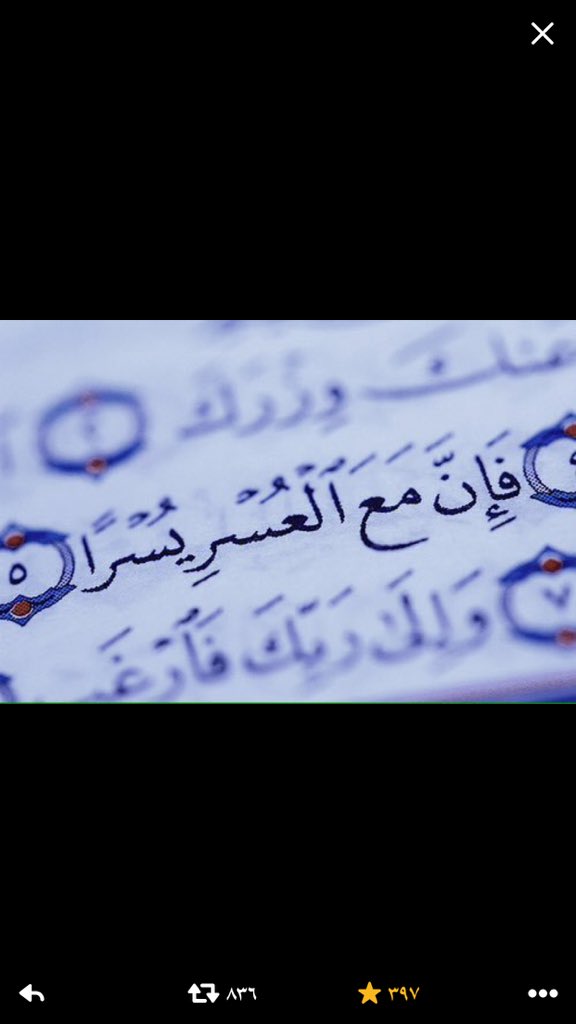 عنك وزرك
فَإِنَّ مَعَ ٱلْعُسْرِ يُسْرًا ٥
٧ وَإِلَىٰ رَبِّكَ فَٱرْغَب
٨٣٦ ٣٩٧